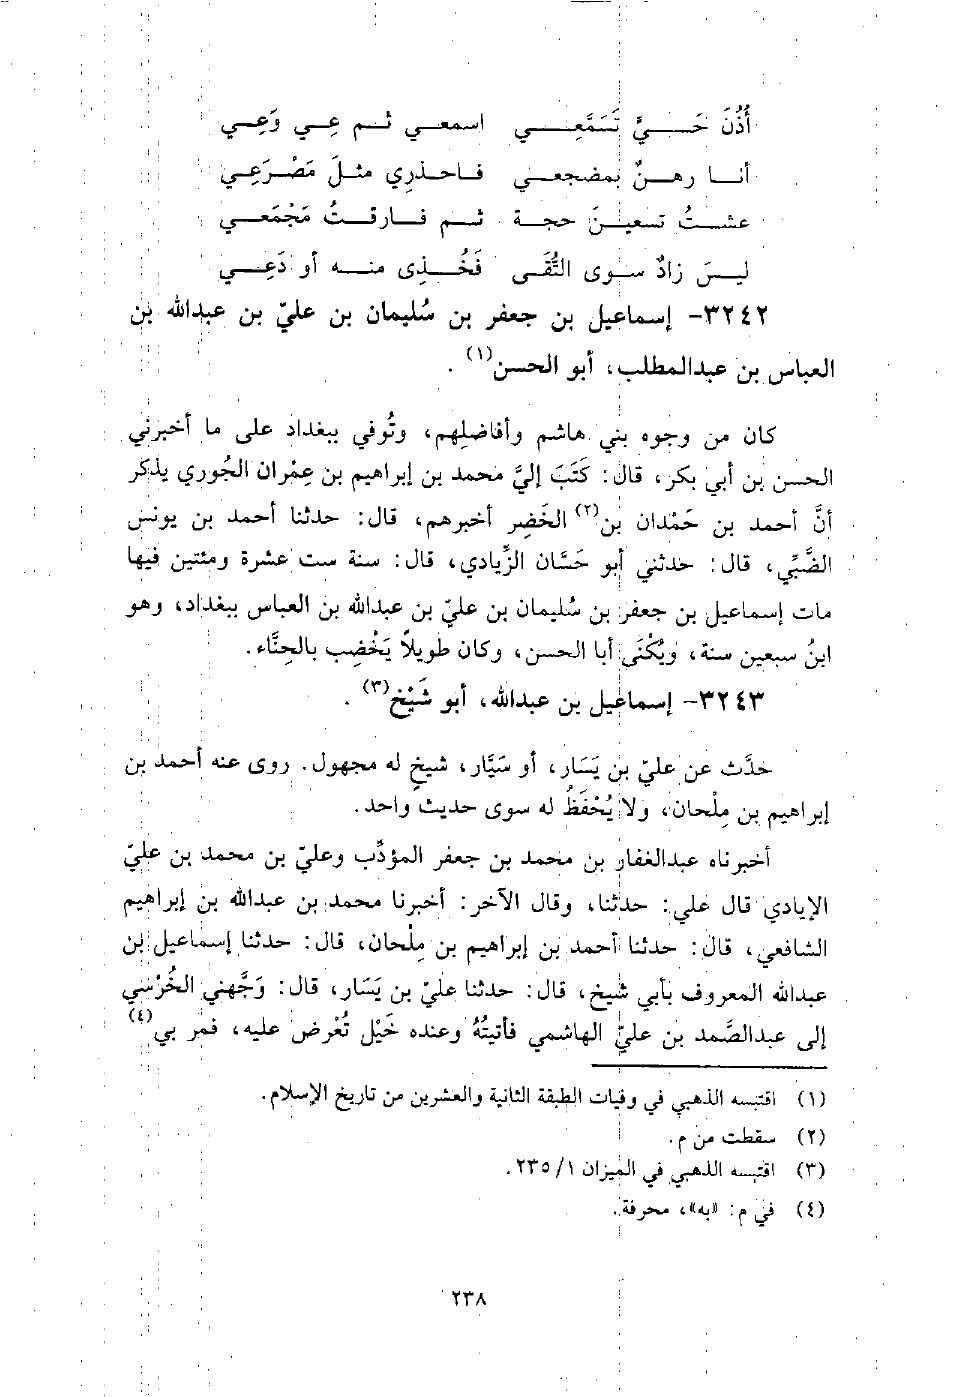 أُذُنَ حَـــيٍّ تَسَمَّعِـــــي اسمعـي ثـم عِـي وَعِـي
أنـا رهـنٌ بمضجعـي فـاحـذرِي مثـلَ مَصْـرَعِـي
عشـتُ تسعيـنَ حجـة ثـم فـارقـتُ مَجْمَعـي
ليـسَ زادٌ سـوى التُّقَـى فَخُـذِى منـه أو دَعِـي
٣٢٤٢- إسماعيل بن جعفر بن سُليمان بن عليّ بن عبدالله بن
العباس بن عبدالمطلب، أبو الحسن(١) .
كان من وجوه بني هاشم وأفاضلهم، وتُوفي ببغداد على ما أخبرني
الحسن بن أبي بكر، قال: كَتَبَ إليَّ محمد بن إبراهيم بن عِمْران الجُوري يذكر
أنَّ أحمد بن حَمْدان بن(٢) الخَضِر أخبرهم، قال: حدثنا أحمد بن يونس
الضَّبِّي، قال: حدثني أبو حَسَّان الزِّيادي، قال: سنة ست عشرة ومئتين فيها
مات إسماعيل بن جعفر بن سُليمان بن عليّ بن عبدالله بن العباس ببغداد، وهو
ابنُ سبعين سنة، ويُكْنَى أبا الحسن، وكان طويلاً يَخْضِب بالحِنَّاء.
٣٢٤٣- إسماعيل بن عبدالله، أبو شَيْخ(٣) .
حدَّث عن عليّ بن يَسَار، أو سَيَّار، شيخٍ له مجهول. روى عنه أحمد بن
إبراهيم بن مِلْحان، ولا يُحْفَظُ له سوى حديث واحد.
أخبرناه عبدالغفار بن محمد بن جعفر المؤدِّب وعليّ بن محمد بن عليّ
الإيادي قال علي: حدثنا، وقال الآخر: أخبرنا محمد بن عبدالله بن إبراهيم
الشافعي، قال: حدثنا أحمد بن إبراهيم بن مِلْحان، قال: حدثنا إسماعيل بن
عبدالله المعروف بأبي شيخ، قال: حدثنا عليّ بن يَسَار، قال: وَجَّهني الخُرْسي
إلى عبدالصَّمد بن عليّ الهاشمي فأتيتُهُ وعنده خَيْل تُعْرض عليه، فمر بي(٤)
(١) اقتبسه الذهبي في وفيات الطبقة الثانية والعشرين من تاريخ الإسلام.
(٢) سقطت من م.
(٣) اقتبسه الذهبي في الميزان ١/ ٢٣٥.
(٤) في م: «به»، محرفة.
٢٣٨